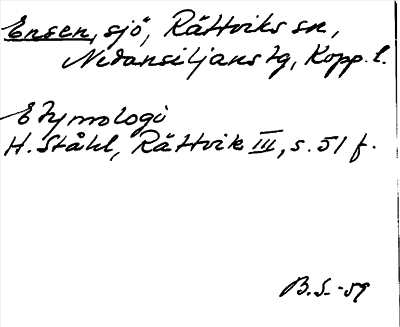 Ensen, sjö, Rättviks sn,
Nedansiljans tg, Kopp. l.
Etymologi
H. Ståhl, Rättvik III, s. 51 f.
B.S. -59